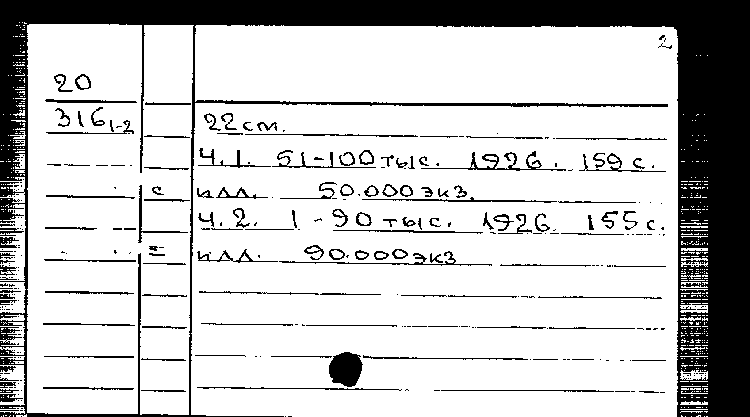 2
20
316 1-2 22 см.
Ч. 1. 51-100 тыс. 1926. 159 с.
с илл. 50.000 экз.
Ч. 2. 1-90 тыс. 1926. 155 с.
илл. 90.000 экз